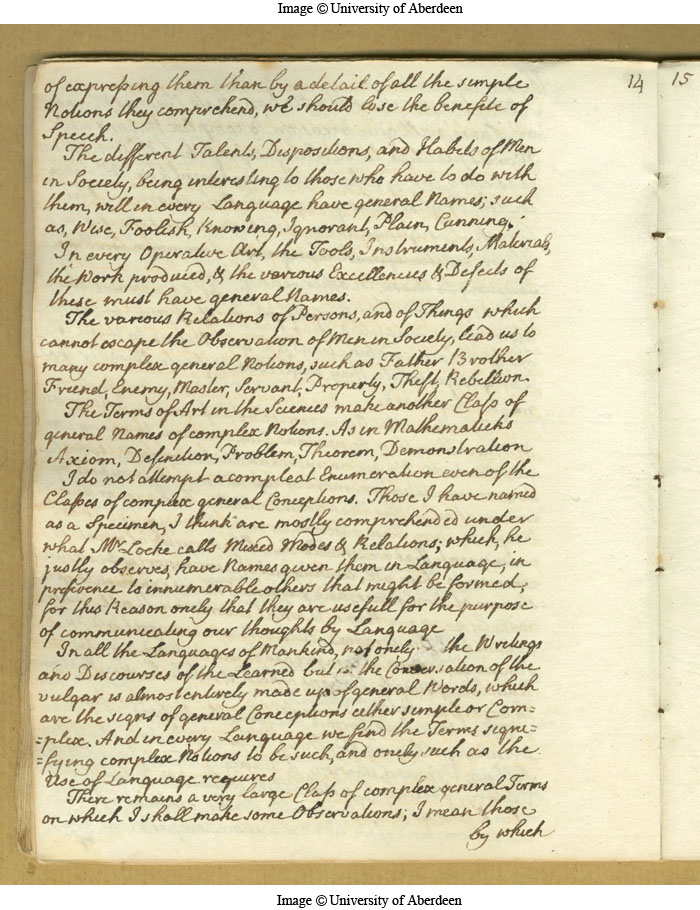 Image © University of Aberdeen
14
15
of expressing them than by a detail of all the simple
Notions they comprehend, we should lose the benefite of
Speech.
The different Talents, Dispositions, and Habits of Men
in Society, being interesting to those who have to do with
them, will in every Language have general Names; such
as, Wise, Foolish, Knowing, Ignorant, Plain, Cunning.
In every Operative Art, the Tools, Instruments, Materials,
the Work produced, & the various Excellencies & Defects of
these must have general Names.
The various Relations of Persons, and of Things which
cannot escape the Observation of Men in Society, lead us to
many complex general Notions, such as Father Brother
Friend, Enemy, Master, Servant, Property, Theft, Rebellion.
The Terms of Art in the Sciences make another Class of
general Names of complex Notions. As in Mathematicks
Axiom, Definition, Problem, Theorem, Demonstration
I do not attempt a compleat Enumeration even of the
Classes of complex general Conceptions. Those I have named
as a Specimen, I think are mostly comprehended under
what Mr Locke calls Mixed Modes & Relations; which, he
justly observes, have Names given them in Language, in
preference to innumerable others that might be formed,
for this Reason onely that they are usefull for the purpose
of communicating our thoughts by Language
In all the Languages of Mankind, not onely the Writings
and Discourses of the Learned but the Conversation of the
vulgar is almost entirely made up of general Words, which
are the signs of general Conceptions either simple or Com=
=plex. And in every Language we find the Terms signi=
=fying complex Notions to be such, and onely such as the
Use of Language requires
There remains a very large Class of complex general Terms
on which I shall make some Observations; I mean those
by which
Image © University of Aberdeen